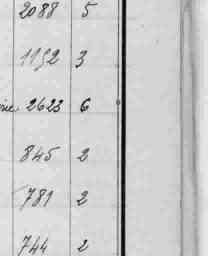 2088 5
1152 3
2623 6
845 2
781 2
744 2